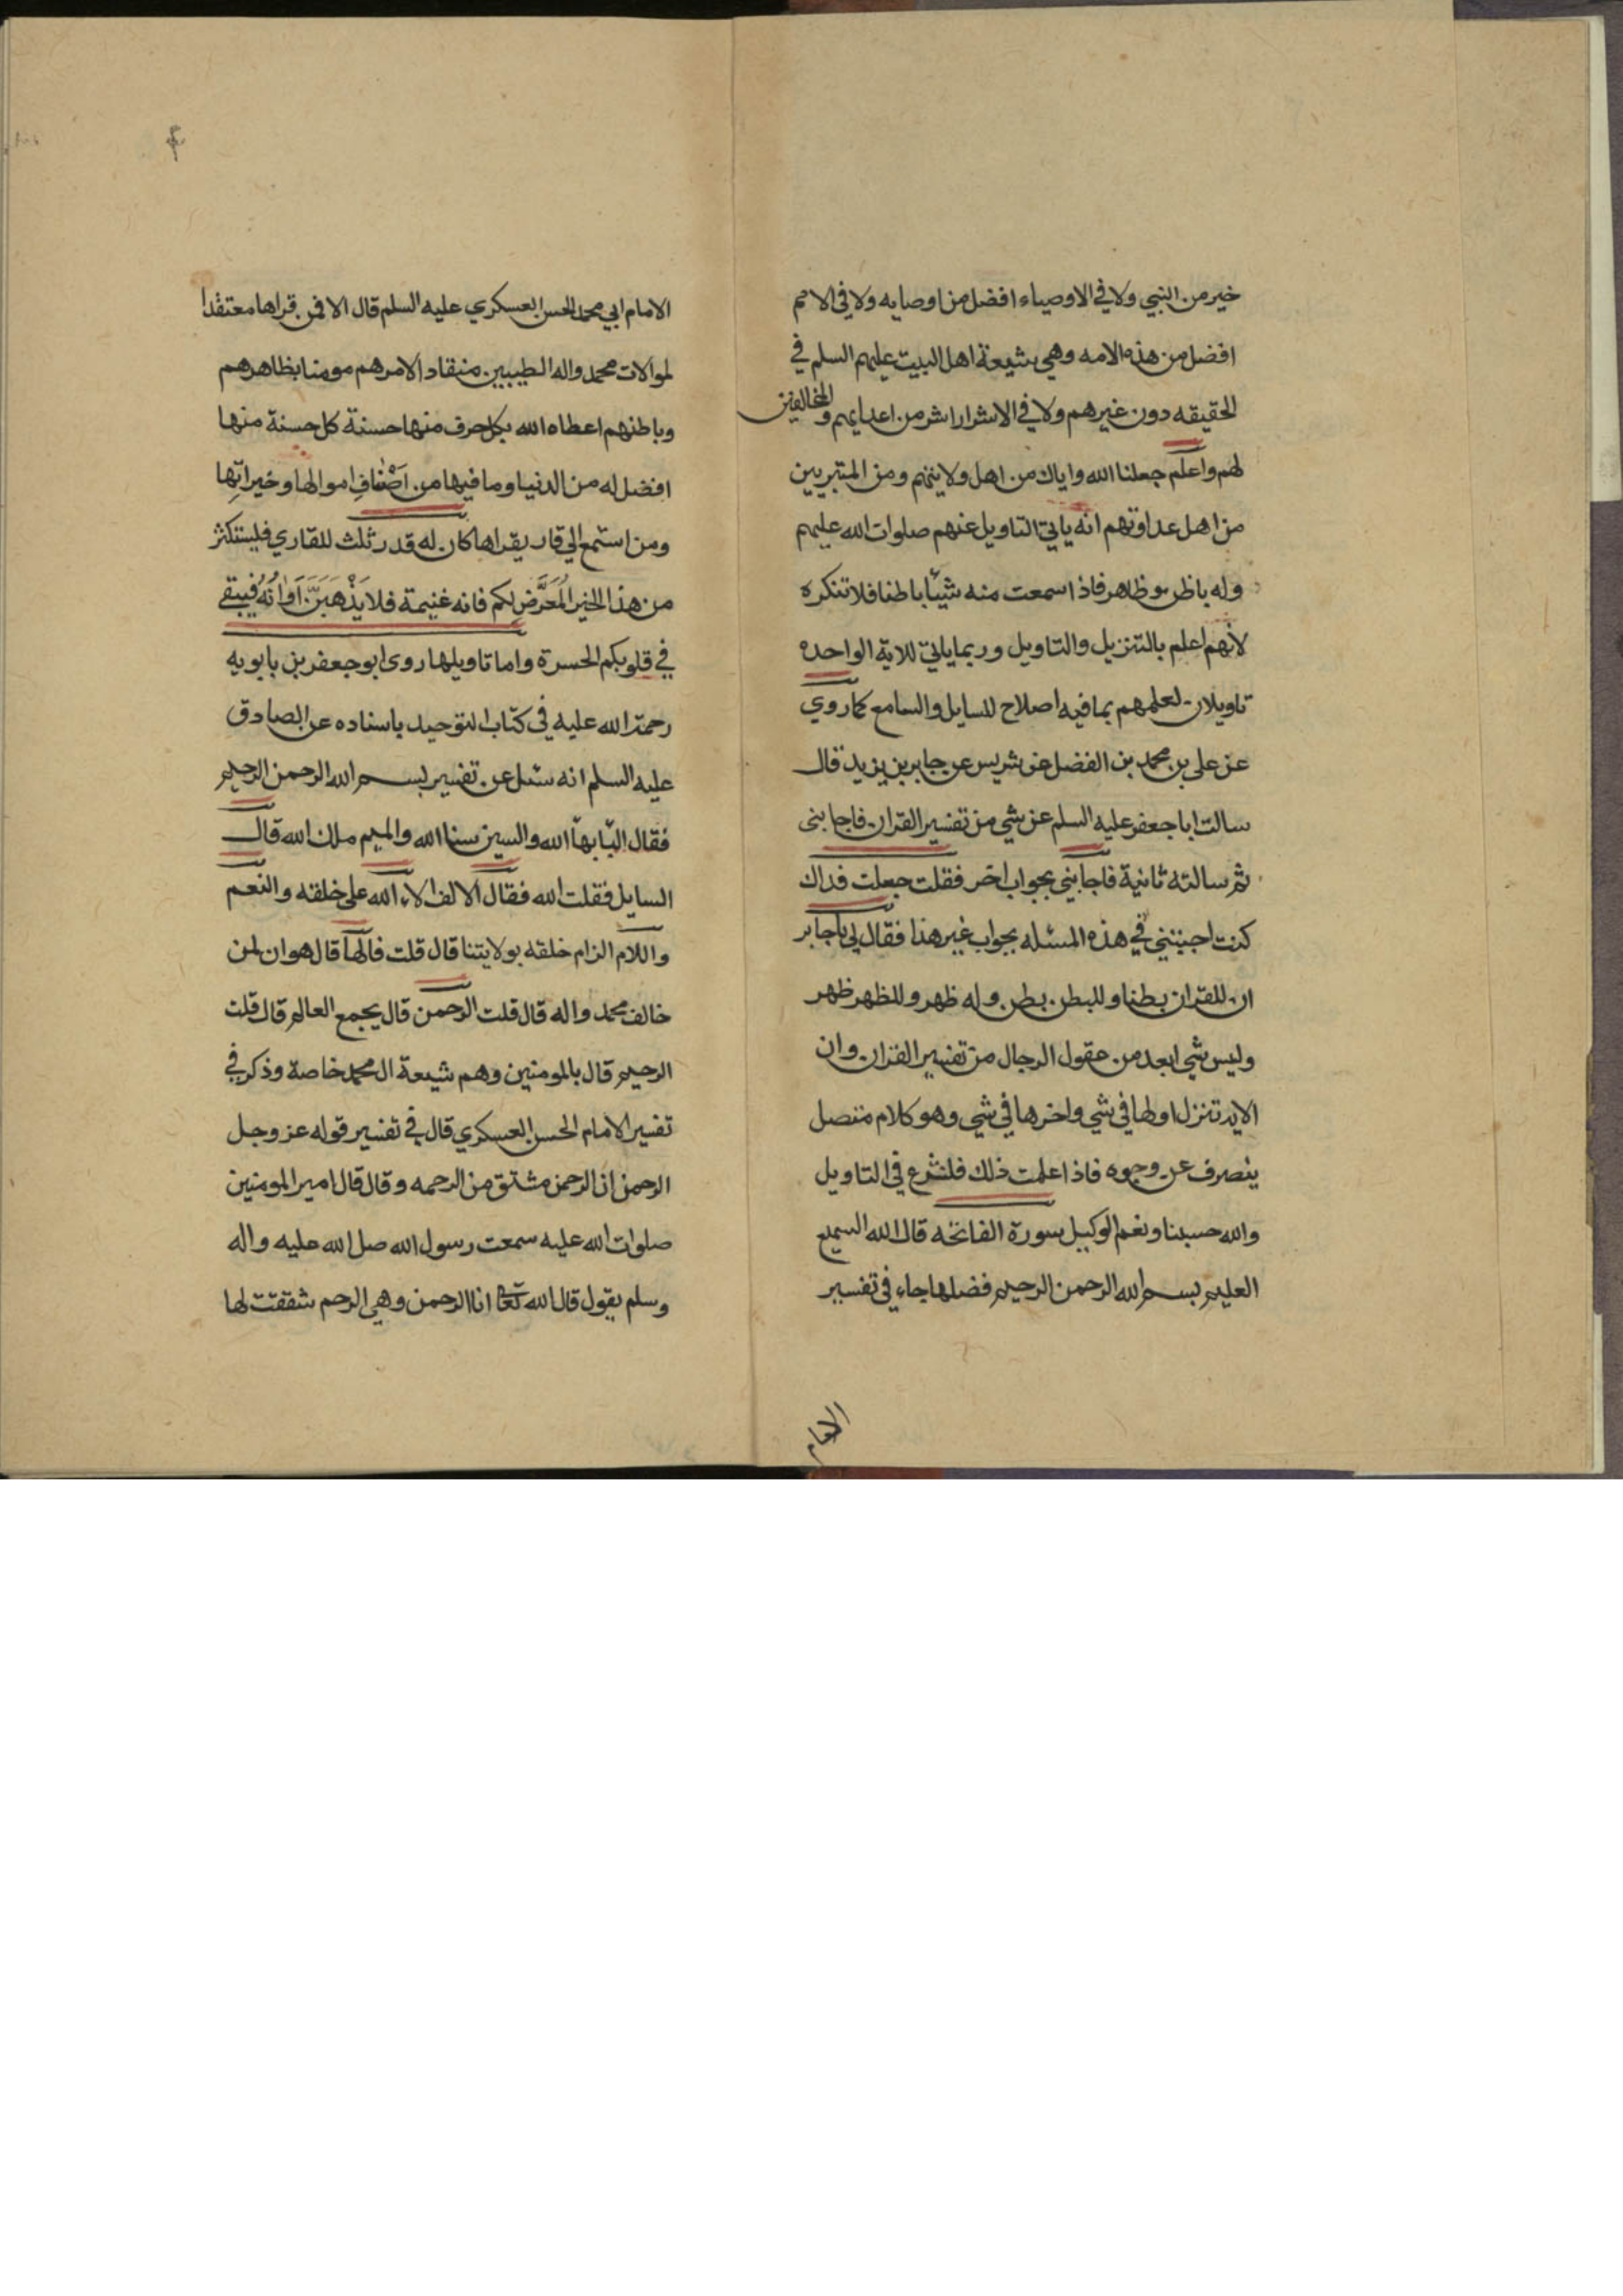 خير من النبي ولا في الاوصياء افضل من اوصيايه ولا في الامم
افضل من هذه الامه وهي شيعة اهل البيت عليهم السلم في
الحقيقه دون غيرهم ولا في الاشرار اشر من اعدايهم والمخالفين
لهم واعلم جعلنا الله واياك من اهل ولايتهم ومن المتبريين
من اهل عداوتهم انه ياتي التاويل عنهم صلوات الله عليهم
وله باطن وظاهر فاذا سمعت منه شيئا باطنا فلا تنكره
لانهم اعلم بالتنزيل والتاويل وربما ياتي للاية الواحده
تاويلان لعلمهم بما فيه اصلاح للسايل والسامع كما روي
عن علي بن محمد بن الفضل عن شريس عن جابر بن يزيد قال
سالت ابا جعفر عليه السلم عن شي من تفسير القران فاجابني
ثم سالته ثانية فاجابني بجواب اخر فقلت جعلت فداك
كنت اجبتني في هذه المسئله بجواب غير هذا فقال لي يا جابر
ان للقران بطنا وللبطن بطن وله ظهر وللظهر ظهر
وليس شي ابعد من عقول الرجال من تفسير القران وان
الايه تنزل اولها في شي واخرها في شي وهو كلام متصل
يتصرف عن وجوه فاذا علمت ذلك فلنشرع في التاويل
والله حسبنا ونعم الوكيل سورة الفاتحه قال الله السميع
العليم بسم الله الرحمن الرحيم فضلها جاء في تفسير
الامام
الامام ابي محمد الحسن العسكري عليه السلم قال الا فمن قراها معتقدا
لموالات محمد واله الطيبين منقادا لامرهم مومنا بظاهرهم
وباطنهم اعطاه الله بكل حرف منها حسنة كل حسنة منها
افضل له من الدنيا وما فيها من اَصْنافِ اموالها وخيراتِها
ومن استمع الي قار يقراها كان له قدر ثلث للقاري فليستكثر
من هذا الخير المُعَرَّضِ لكم فانه غنيمة فلا يَذْهَبَنَّ اَوانُهُ فيبقي
في قلوبكم الحسرة واما تاويلها روى ابو جعفر بن بابويه
رحمة الله عليه في كتاب التوحيد باسناده عن الصادق
عليه السلم انه سئل عن تفسير بسم الله الرحمن الرحيم
فقال البا بهآ الله والسين سنا الله والميم ملك الله قال
السايل فقلت الله فقال الالف الاء الله على خلقه والنعم
واللام الزام خلقه بولايتنا قال قلت فالهآ قال هوان لمن
خالف محمد واله قال قلت الرحمن قال بجميع العالم قال قلت
الرحيم قال بالمومنين وهم شيعة ال محمد خاصة وذكر في
تفسير الامام الحسن العسكري قال في تفسير قوله عز وجل
الرحمن ان الرحمن مشتق من الرحمه وقال قال امير المومنين
صلوات الله عليه سمعت رسول الله صل الله عليه واله
وسلم يقول قال الله تعا انا الرحمن وهي الرحم شققت لها